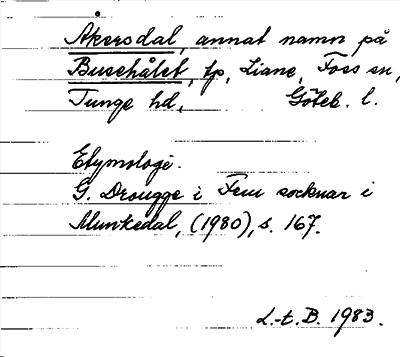 Åkersdal, annat namn på
Busehålet, tp, Liane, Foss sn,
Tunge hd, Göteb. l.
Etymologi.
G. Drougge i Fem socknar i
Munkedal, (1980), s. 167.
L.-t. B. 1983.